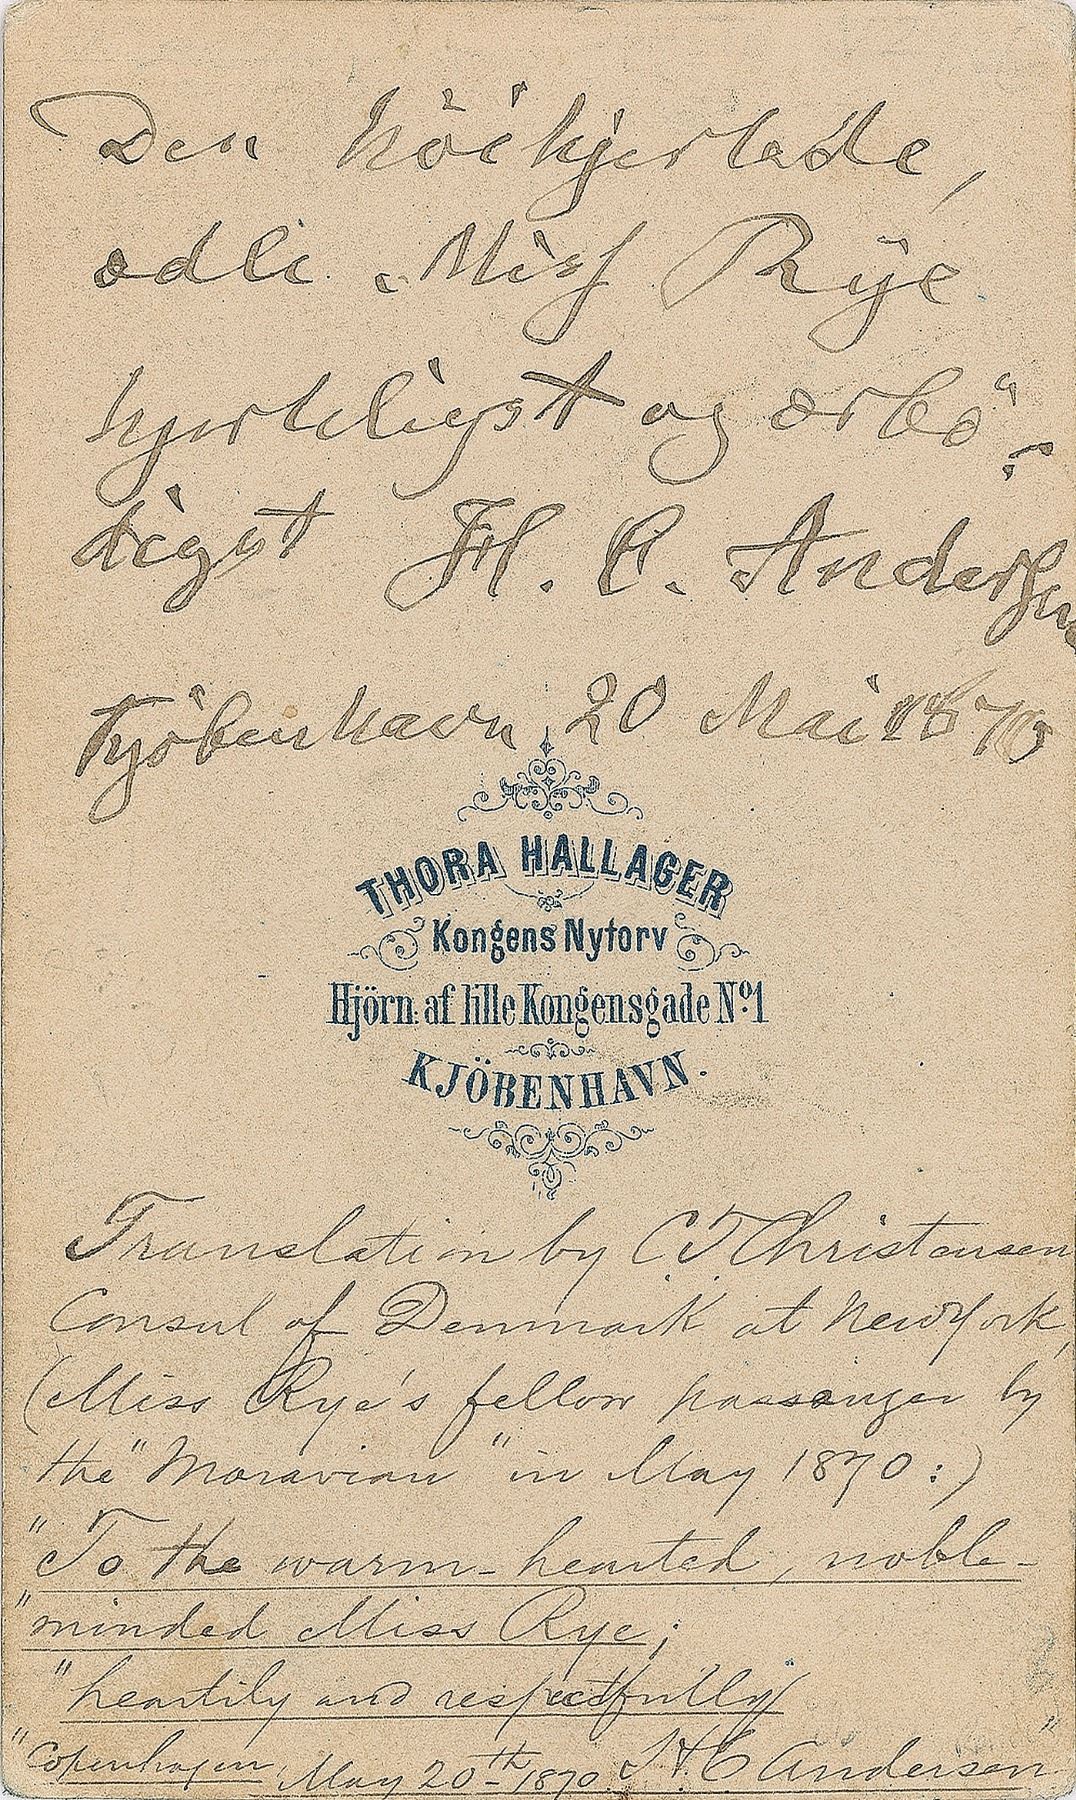 Den höihjertede,
ædle Miss Rye
hjerteligst og ærbö-
digst H. C. Andersen
Kjöbenhavn 20 Mai 1870
THORA HALLAGER
Kongens Nytorv
Hjörn: af lille Kongensgade No. 1
KJÖBENHAVN.
Translation by C T Christensen
Consul of Denmark at New York,
(Miss Rye's fellow passenger by
the "Moravian" in May 1870:)
"To the warm-hearted, noble-
"minded Miss Rye;
"heartily and respectfully
"Copenhagen May 20th 1870. H C Andersen"